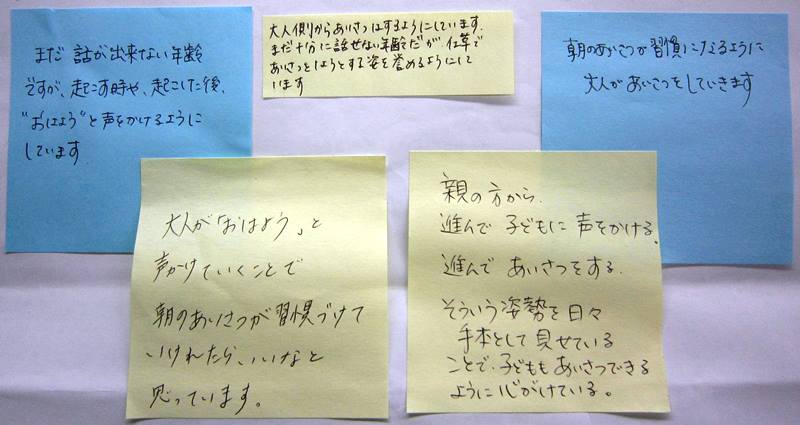 まだ 話が出来ない年齢
ですが、起こす時や、起こした後、
"おはよう"と声をかけるように
しています
大人側からあいさつはするようにしています.
まだ十分に話せない年齢だが、仕草で
あいさつをしようとする姿を誉めるようにして
います
朝のあいさつが習慣になるように
大人があいさつをしていきます
大人が「おはよう」と
声かけていくことで
朝のあいさつが習慣づけて
いけれたら、いいなと
思っています。
親の方から、
進んで 子どもに 声をかける.
進んで あいさつをする.
そういう姿勢を日々
手本として見せている
ことで、子どももあいさつできる
ように心がけている。